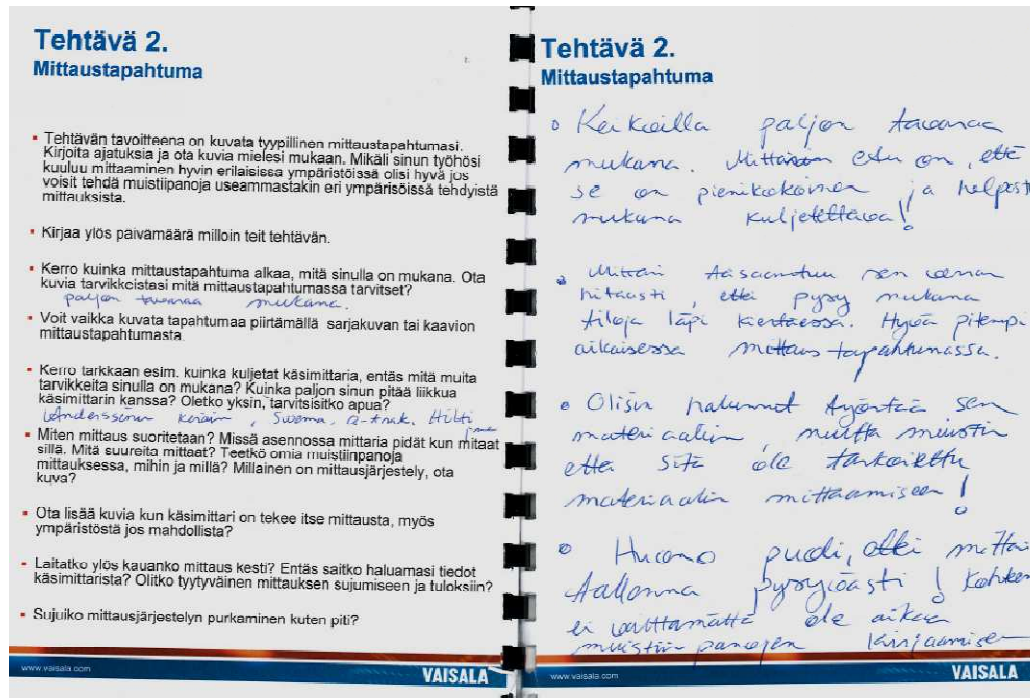 Tehtävä 2.
Mittaustapahtuma
Tehtävän tavoitteena on kuvata tyypillinen mittaustapahtumasi.
Kirjoita ajatuksia ja ota kuvia mielesi mukaan. Mikäli sinun työhösi
kuuluu mittaaminen hyvin erilaisissa ympäristöissä olisi hyvä jos
voisit tehdä muistiipanoja useammastakin eri ympärisöissä tehdyistä
mittauksista.
Kirjaa ylös paivamäärä milloin teit tehtävän.
Kerro kuinka mittaustapahtuma alkaa, mitä sinulla on mukana. Ota
kuvia tarvikkeistasi mitä mittaustapahtumassa tarvitset?
paljon tavaraa mukana.
Voit vaikka kuvata tapahtumaa piirtämällä sarjakuvan tai kaavion
mittaustapahtumasta.
Kerro tarkkaan esim. kuinka kuljetat käsimittaria, entäs mitä muita
tarvikkeita sinulla on mukana? Kuinka paljon sinun pitää liikkua
käsimittarin kanssa? Oletko yksin, tarvitsisitko apua?
Swema, Hilti
Miten mittaus suoritetaan? Missä asennossa mittaria pidät kun mitaat
sillä. Mitä suureita mittaat? Teetkö omia muistiinpanoja
mittauksessa, mihin ja millä? Millainen on mittausjärjestely, ota
kuva?
Ota lisää kuvia kun käsimittari on tekee itse mittausta, myös
ympäristöstä jos mahdollista?
Laitatko ylös kauanko mittaus kesti? Entäs saitko haluamasi tiedot
käsimittarista? Olitko tyytyväinen mittauksen sujumiseen ja tuloksiin?
Sujuiko mittausjärjestelyn purkaminen kuten piti?
www.vaisala.com
VAISALA
Tehtävä 2.
Mittaustapahtuma
Keikoilla paljon tavaraa
mukana. Mittarin etu on, että
se on pienikokoinen ja helposti
mukana kuljetettava!
Mittari tasaantuu sen verran
hitaasti, ettei pysy mukana
tiloja läpi kiertäessä. Hyvä pitempi
aikaisessa mittaus tapahtumassa.
Olisin halunnut työntää sen
materiaaliin, mutta muistin
ettei sitä ole tarkoitettu
materiaalin mittaamiseen!
Huono puoli, ettei mittari
tallenna pysyvästi!
ei välttämättä ole aikaa
muistiin panojen kirjaamiseen
www.vaisala.com
VAISALA